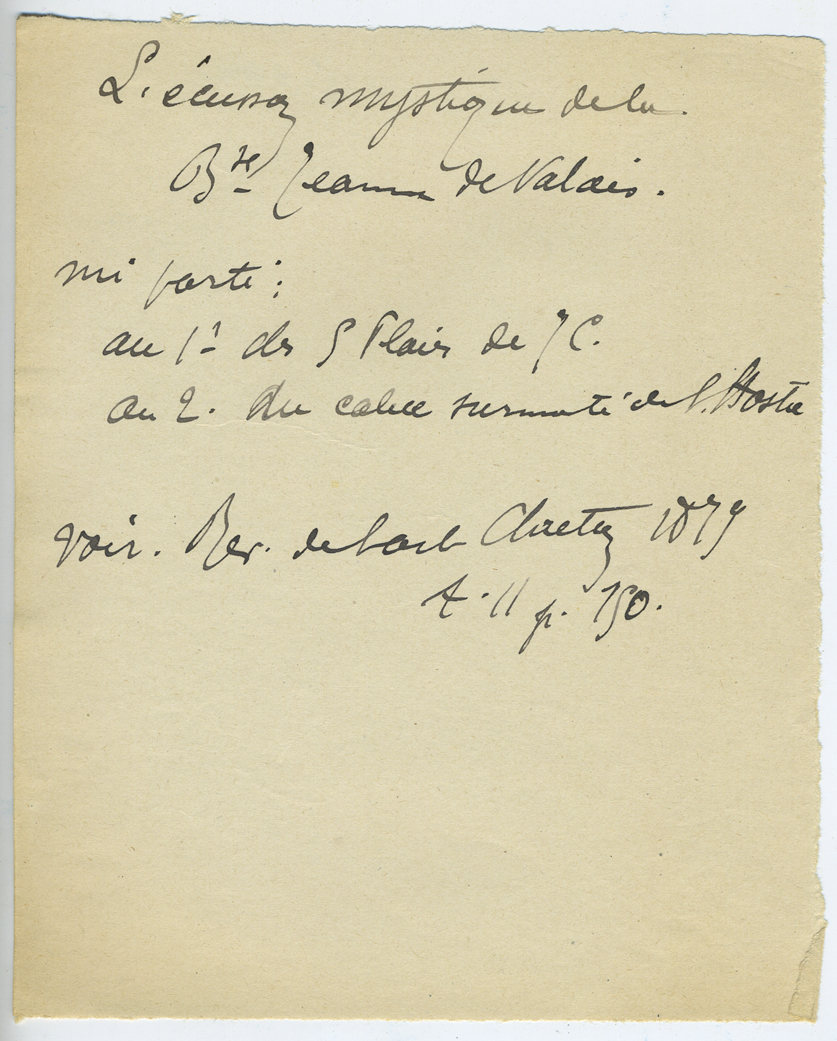 L'écusson mystique de la
Bse Jeanne de Valois.
mi parti :
au 1r des 5 Plaies de J C.
au 2. du calice surmonté de l'Hostie
voir. Rev. de l'art Chretien 1879
t. 11 p. 150.